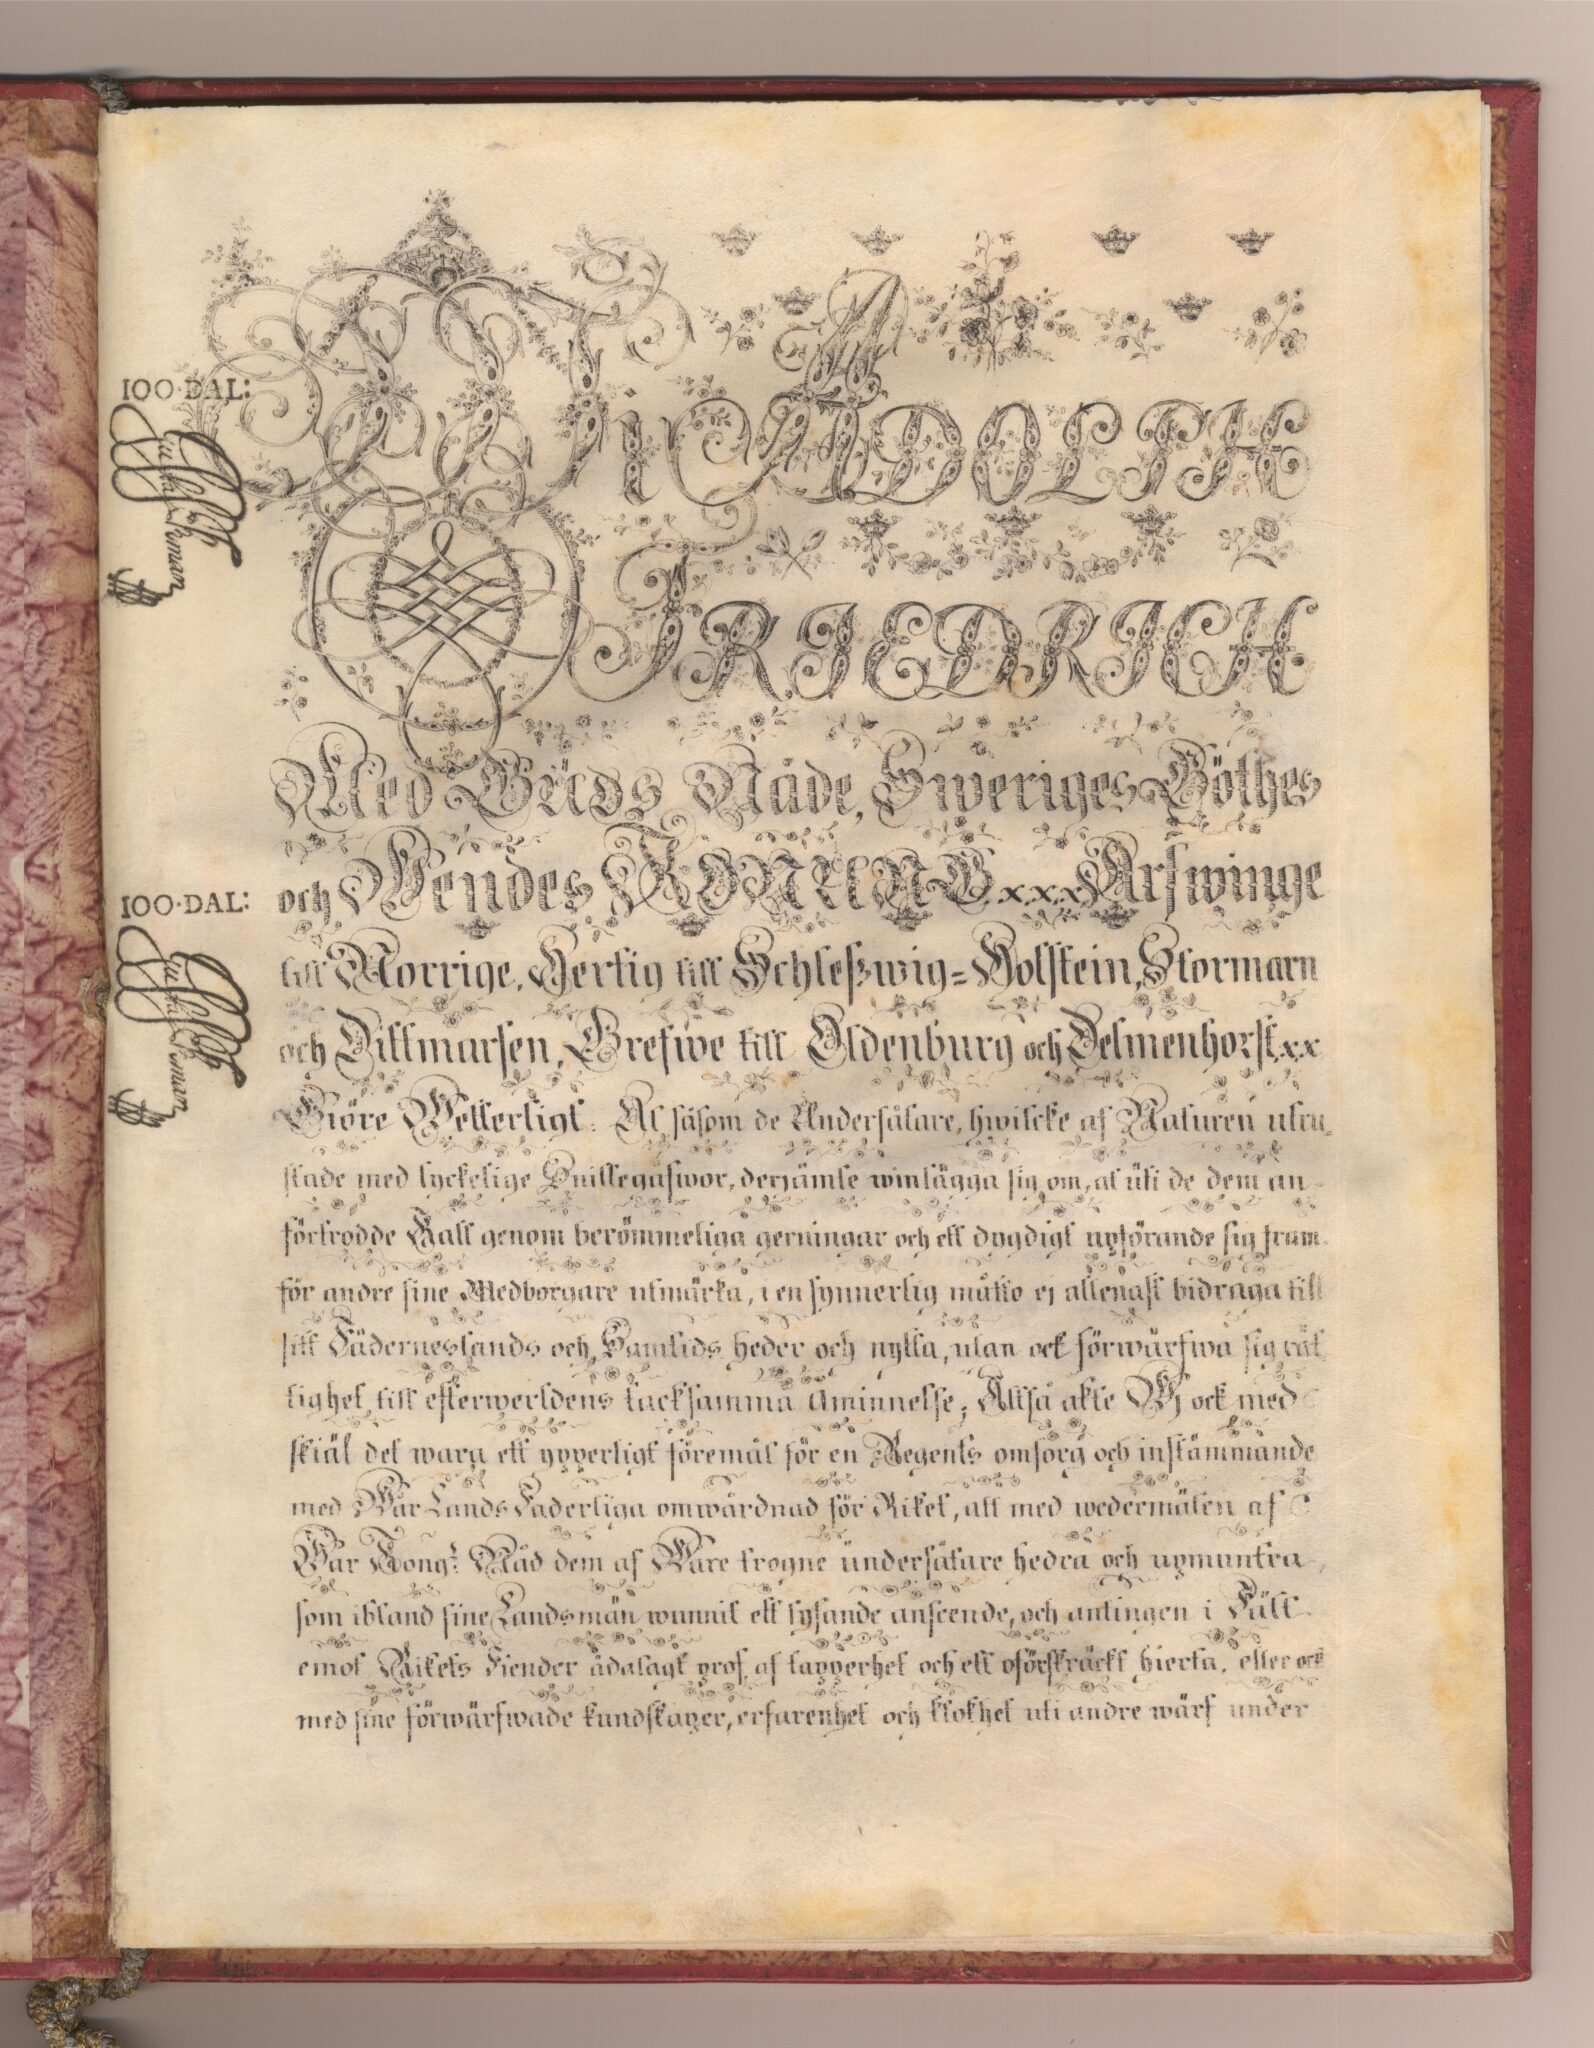 Wi ADOLPH
FRIEDRICH
Med Guds Nåde, Sweriges Göthes
och Wendes KONUNG x.x.x Arfwinge
till Norrige, Hertig till Schleßwig=Holstein, Stormarn
och Dittmarsen, Grefwe till Oldenburg och Delmenhorst x.x
Giöre Wetterligt: At såsom de Undersåtare, hwilcke af Naturen utru-
stade med lyckelige Snillegåfwor, derjämte winlägga sig om, at uti de dem an-
förtrodde Kall genom berömmeliga gerningar och ett dygdigt upförande sig fram-
för andre sine Medborgare utmärka, i en synnerlig måtto ej allenast bidraga till
sitt Fäderneslands och Samtids heder och nytta, utan ock förwärfwa sig rät-
tighet till efterwerldens tacksamma åminnelse; Altså akte Wj ock med
skiäl det wara ett ypperligt föremål för en Regents omsorg och instämmande
med Wår Lands Faderliga omwårdnad för Riket, att med wedermälen af
Wår Kongl: Nåd dem af Wåre trogne undersåtare hedra och upmuntra,
som ibland sine Landsmän wunnit ett lysande anseende, och antingen i Fält
emot Rikets Fiender ådalagt prof af tapperhet och ett oförskräckt hierta, eller ock
med sine förwärfwade kundskaper, erfarenhet och klokhet uti andre wärf under
100·DAL:
100·DAL: